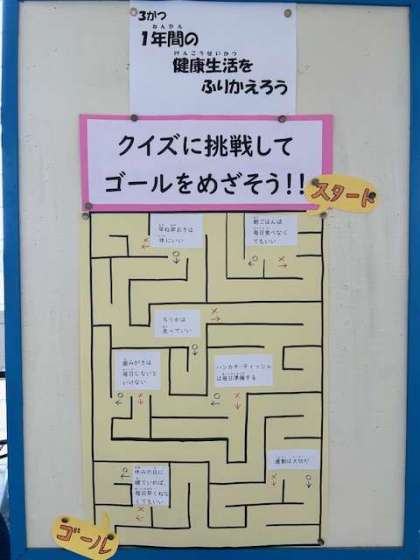 3がつ
1年間の
ねんかん
健康生活を
けんこうせいかつ
ふりかえろう
クイズに挑戦して
ゴールをめざそう!!
スタート
早ね早おきは
体にいい
○
×
朝ごはんは
毎日食べなく
てもいい
○
×
ろうかは
走っていい
○
×
歯みがきは
毎日しないと
いけない
○
×
ハンカチ・ティッシュ
は毎日準備する
○
×
運動は大切だ
○
×
休みの日に
寝ていれば、
毎日早くねな
くてもいい
○
×
ゴール